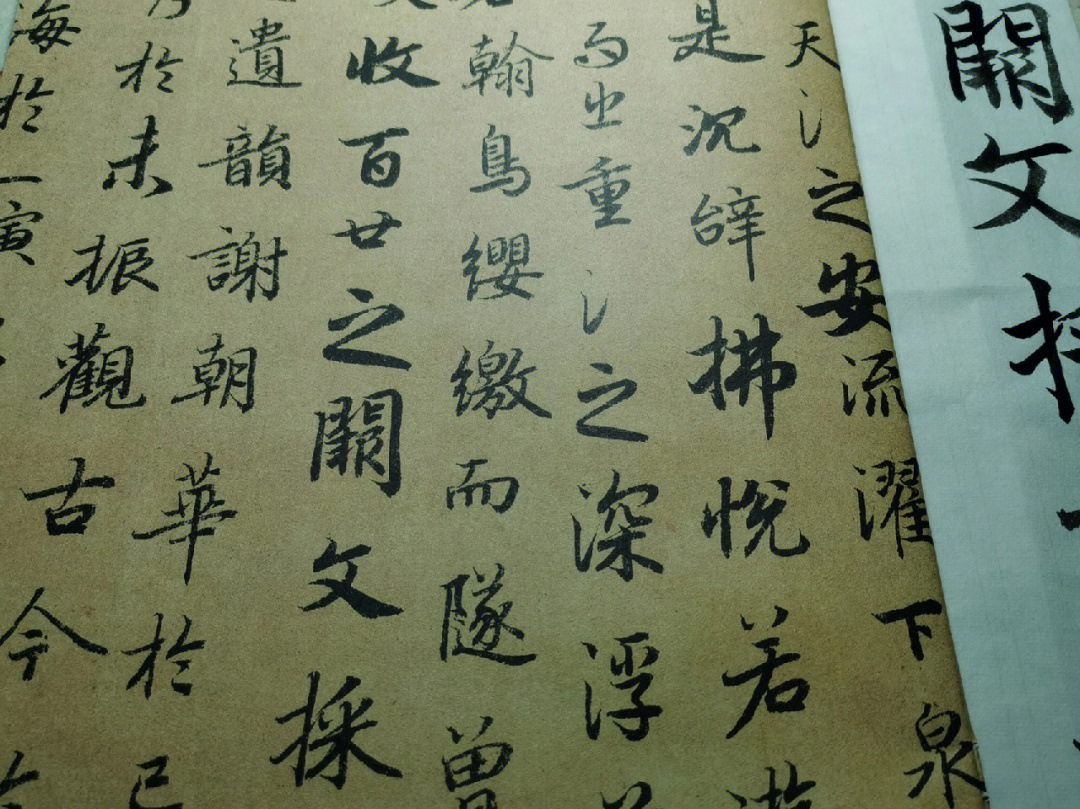 闕文採
天氵之安流濯下泉
是沉辭拂悅若游
而出重氵之深浮
翰鳥纓繳而隧曾
收百廿之闕文採
遺韻謝朝華於已
於未振觀古今
海於一